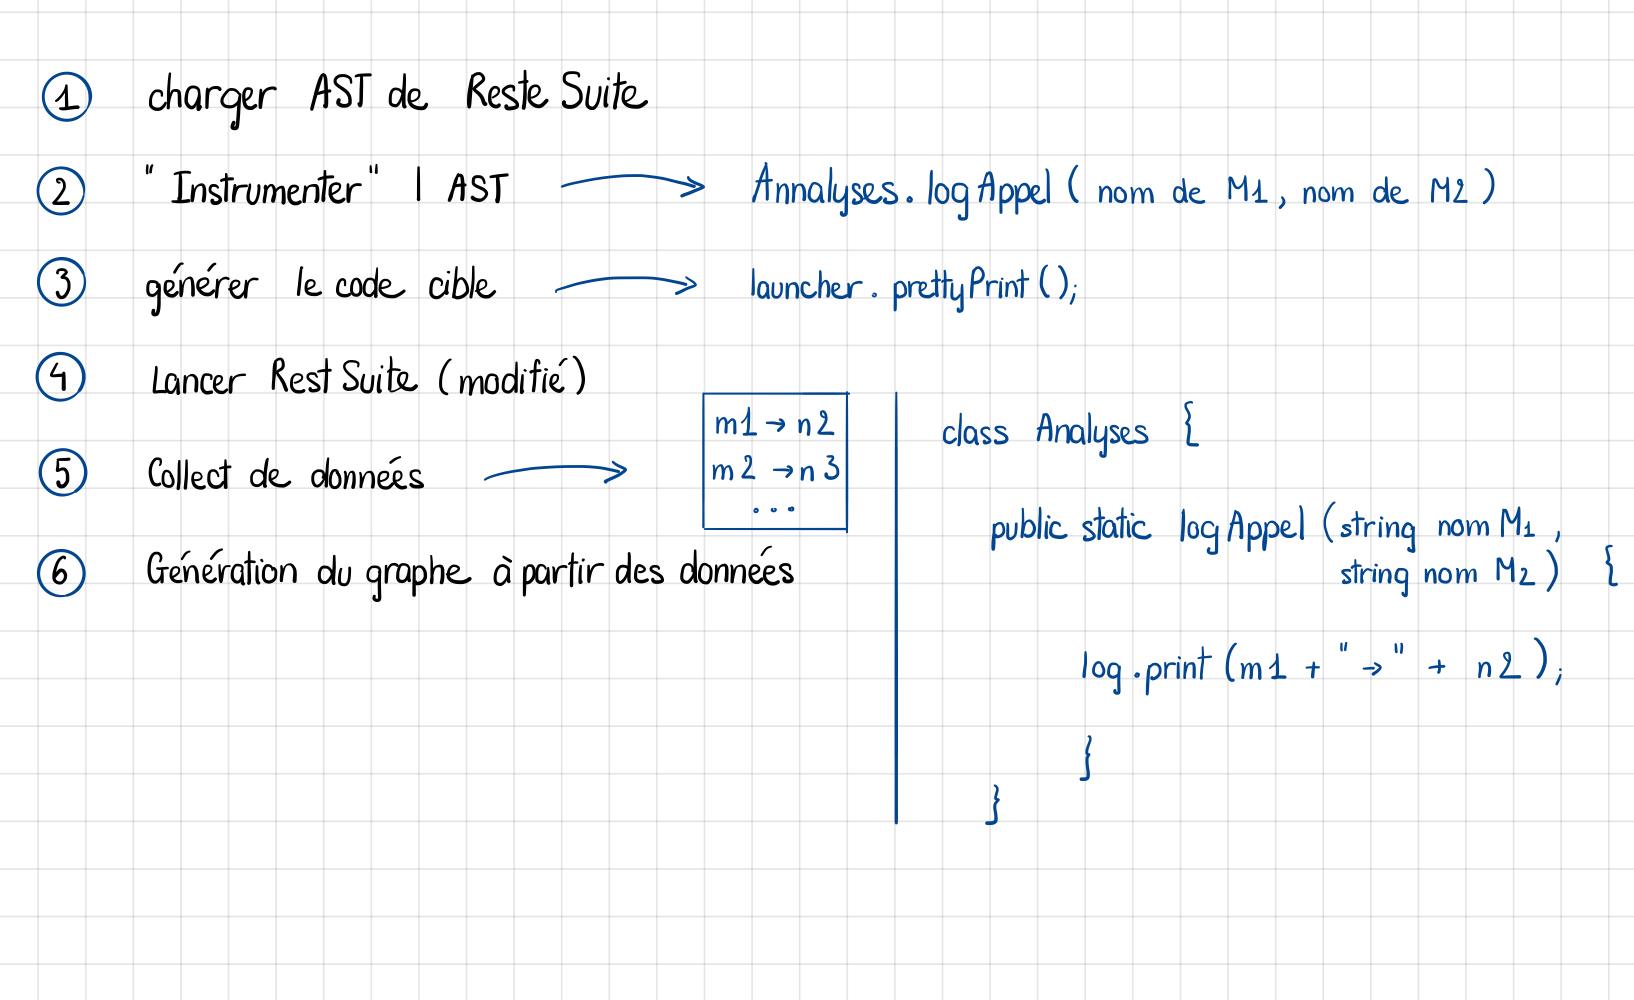 1 charger AST de Reste Suite
2 "Instrumenter" l AST → Annalyses.logAppel ( nom de M1, nom de M2 )
3 générer le code cible → launcher.prettyPrint();
4 Lancer Rest Suite (modifié)
5 Collect de données →
m1 → n2
m2 → n3
...
6 Génération du graphe à partir des données
class Analyses {
public static logAppel (string nom M1,
string nom M2) {
log.print(m1 + "→" + n2);
}
}